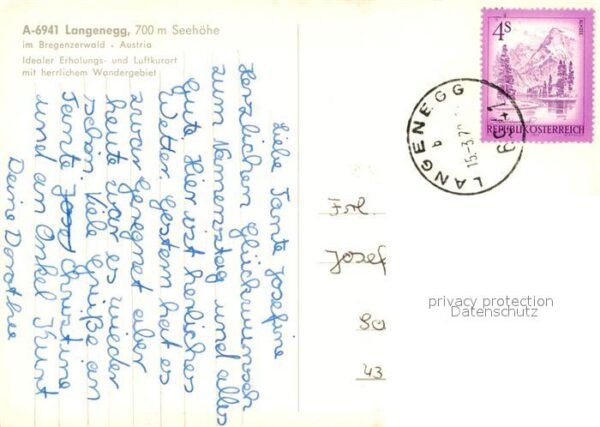 A-6941 Langenegg, 700 m Seehöhe
im Bregenzerwald · Austria
Idealer Erholungs- und Luftkurort
mit herrlichem Wandergebiet
Liebe Tante Josefine
Herzlichen Glückwunsch
zum Namenstag und alles
Gute Hier ist herliches
Wetter Gestern hat es
zwar geregnet aber
heute war es wieder
schön. Viele Grüße an
Tante Christine
und an Onkel Kunt
Deine Dorothee
4S
REPUBLIK ÖSTERREICH
LANGENEGG
b
6941
Frl
Josef
43
privacy protection
Datenschutz